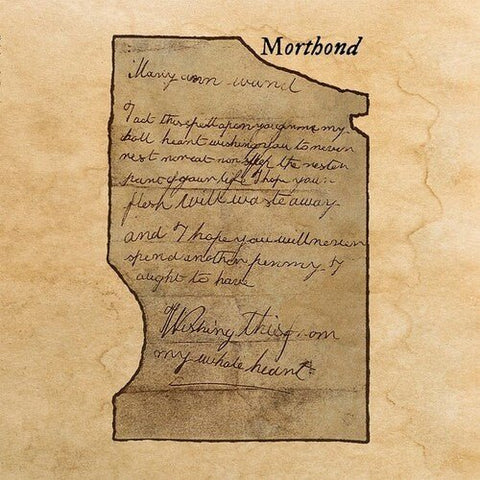 Morthond
Mary ann wand
I act this spell upon you from my
holl heart wishing you to never
rest nor eat nor sleep the resten
part of your life I hope your
flesh will waste away
and I hope you will never
spend another penny I
ought to have
Wishing this from
my whole heart